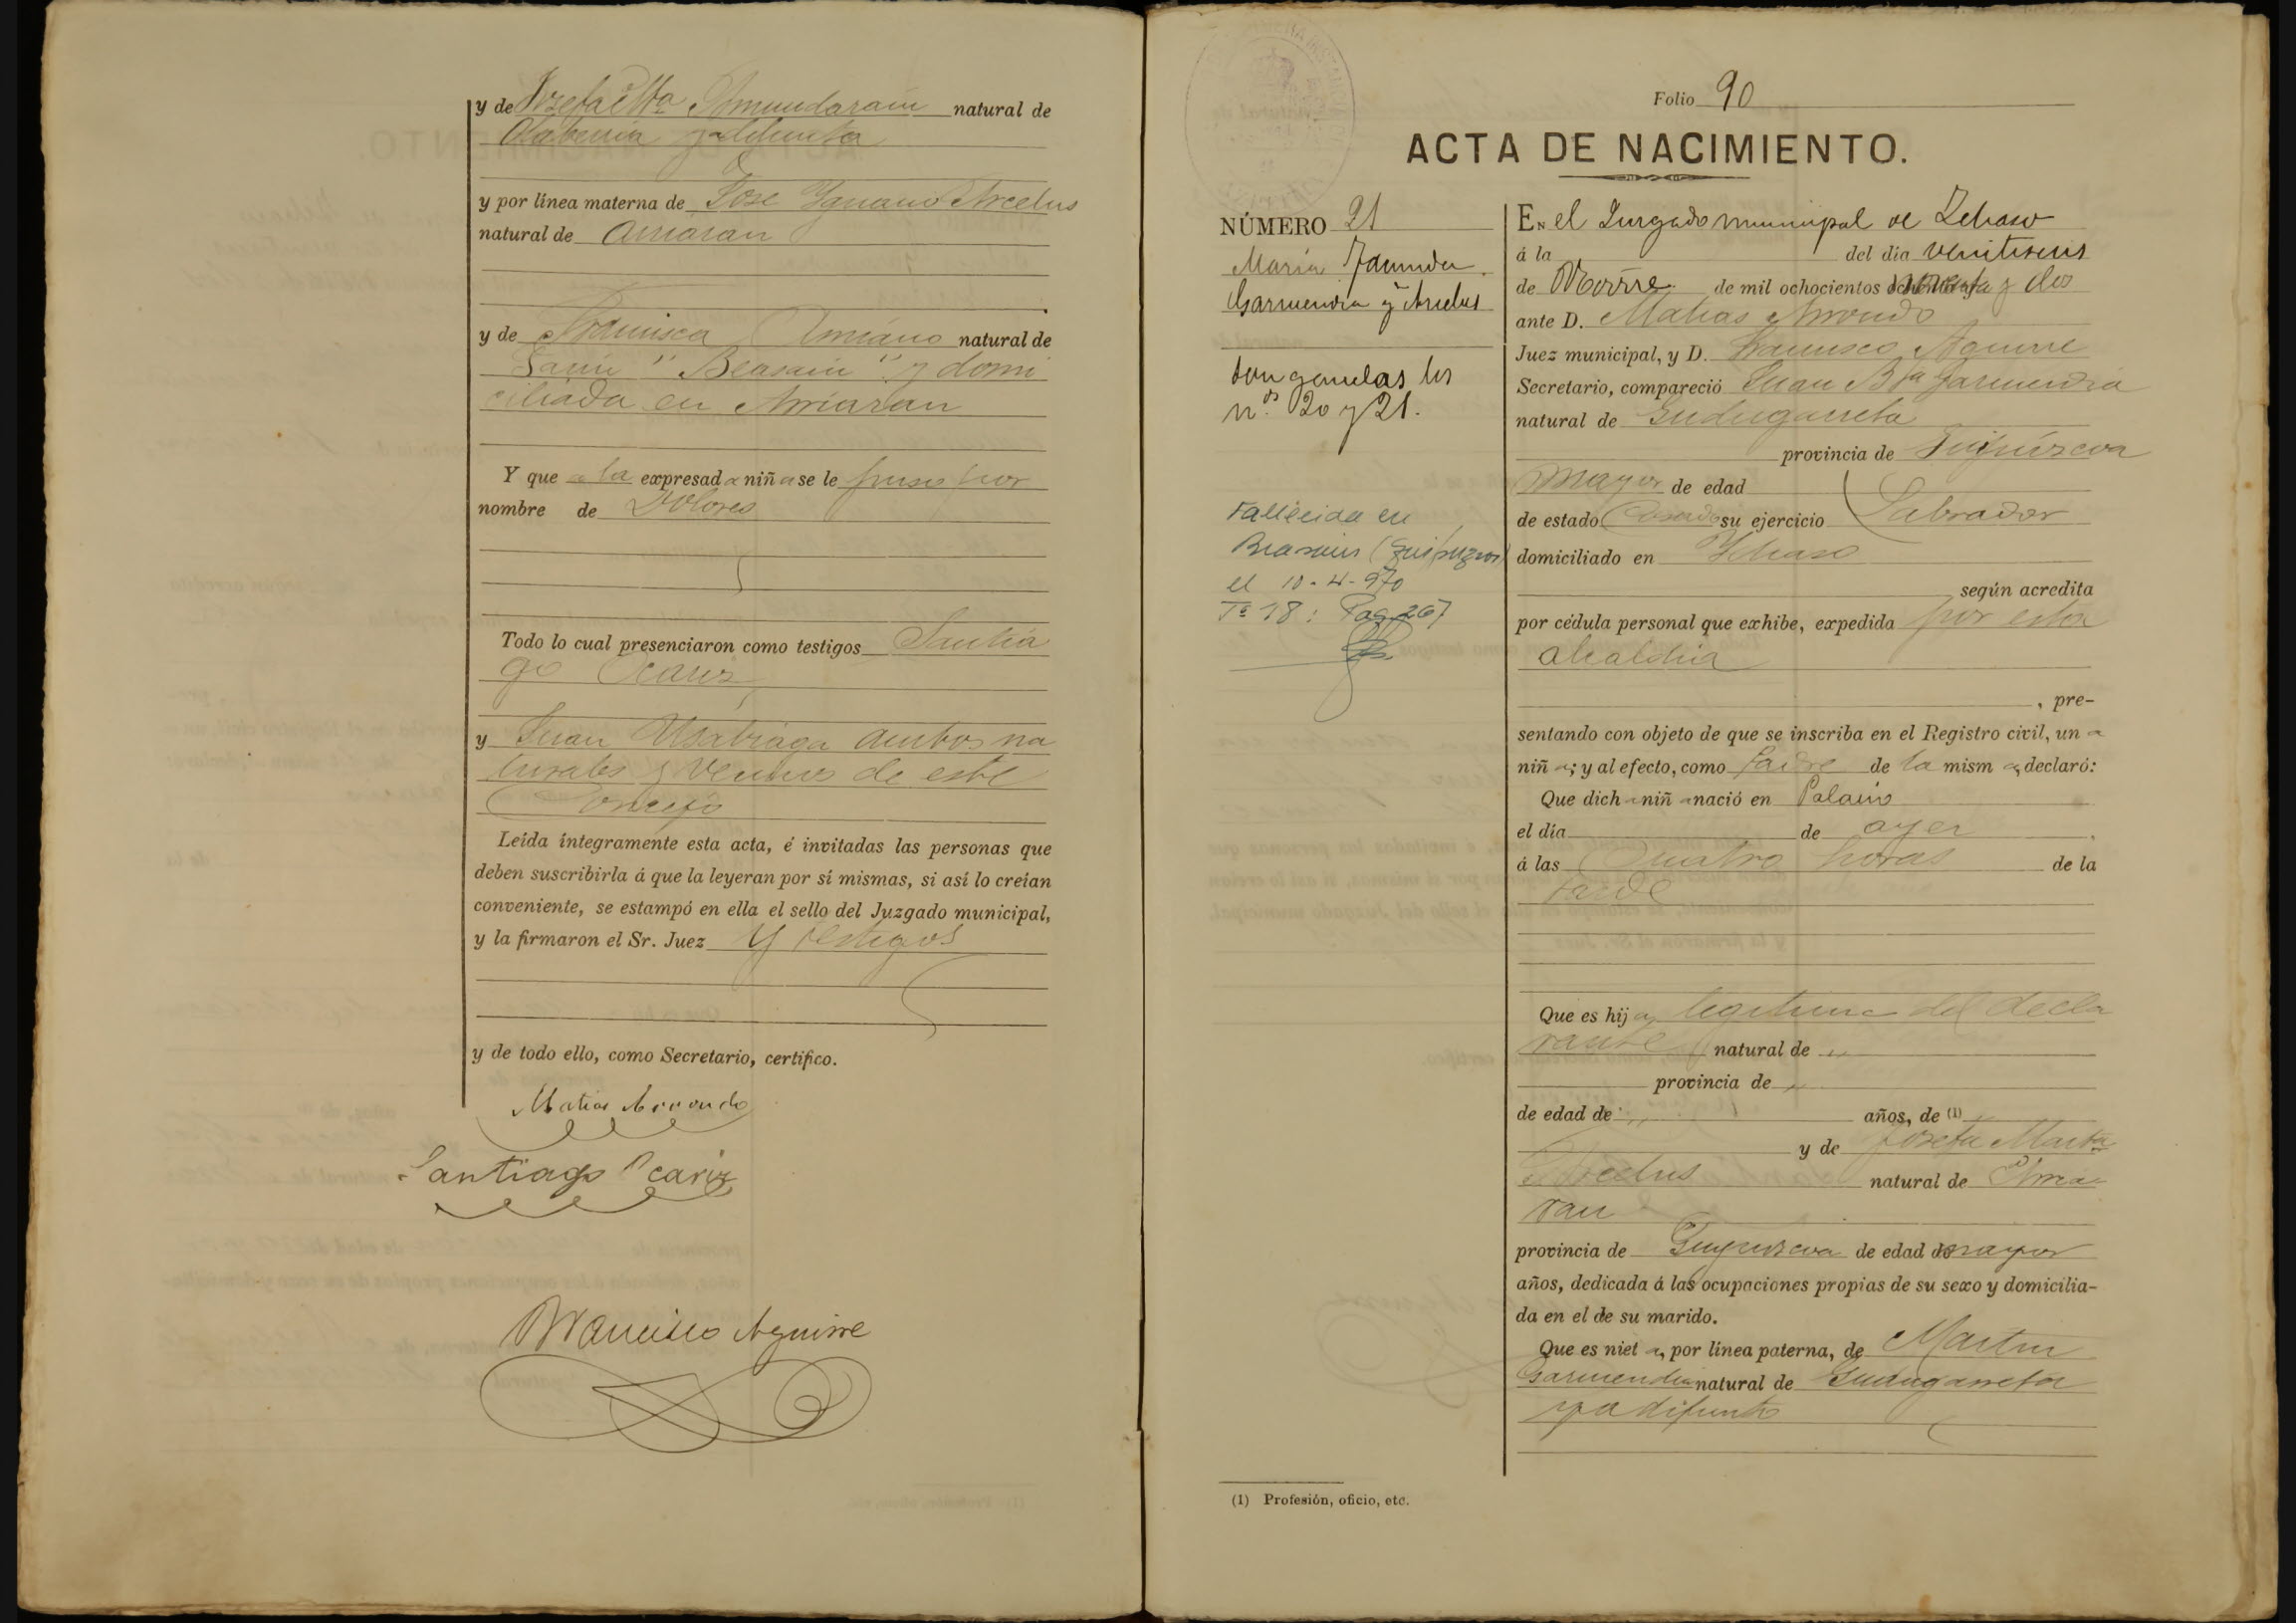 y de Josefa Mª Amundarain natural de
Olaberria ya difunta
y por línea materna de Jose Ygnacio Arcelus
natural de Arriaran
y de Francisca Amiano natural de
"Beasain" y domi
ciliada en Arriaran
Y que a la expresada niña se le puso por
nombre de Dolores
Todo lo cual presenciaron como testigos Santia
go Ocariz
y Juan Usabiaga ambos na
turales y vecinos de este
Concejo
Leída íntegramente esta acta, é invitadas las personas que
deben suscribirla á que la leyeran por sí mismas, si así lo creían
conveniente, se estampó en ella el sello del Juzgado municipal,
y la firmaron el Sr. Juez y testigos
y de todo ello, como Secretario, certifico.
Matias Arrondo
Santiago Ocariz
Francisco Aguirre
Folio 90
ACTA DE NACIMIENTO.
NÚMERO 21
Maria Facunda
Garmendia y Arcelus
Son gemelas los
n.os 20 y 21.
Fallecida en
Beasain (Guipuzcoa)
el 10-4-970
Tº 18: Pag 267
En el Juzgado municipal de Ichaso
á la del dia veintiseis
de Novbre de mil ochocientos noventa y dos
ante D. Matias Arrondo
Juez municipal, y D. Francisco Aguirre
Secretario, compareció Juan Bta Garmendia
natural de Gudugarreta
provincia de Guipúzcoa
mayor de edad
de estado Casado su ejercicio Labrador
domiciliado en Ychaso
según acredita
por cédula personal que exhibe, expedida por esta
alcaldia
, pre-
sentando con objeto de que se inscriba en el Registro civil, una
niña; y al efecto, como Padre de la misma, declaró:
Que dicha niña nació en Palacio
el día de ayer
á las Cuatro horas de la
tarde
Que es hija legitima del decla
rante natural de "
provincia de "
de edad de " años, de (1)
y de Josefa Marta
Arcelus natural de Arria
ran
provincia de Guipuzcoa de edad mayor
años, dedicada á las ocupaciones propias de su sexo y domicilia-
da en el de su marido.
Que es nieta, por línea paterna, de Martin
Garmendia natural de Gudugarreta
ya difunto
(1) Profesión, oficio, etc.